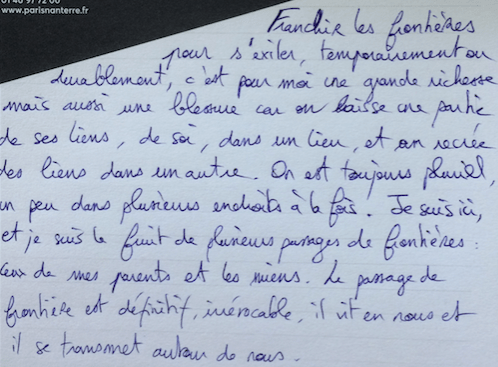 www.parisnanterre.fr
Franchir les frontières
pour s'exiler, temporairement ou
durablement, c'est pour moi une grande richesse
mais aussi une blessure car on laisse une partie
de ses liens, de soi, dans un lieu, et on recrée
des liens dans un autre. On est toujours pluriel,
un peu dans plusieurs endroits à la fois. Je suis ici,
et je suis le fruit de plusieurs passages de frontières :
ceux de mes parents et les miens. Le passage de
frontière est définitif, irrévocable, il vit en nous et
il se transmet autour de nous.